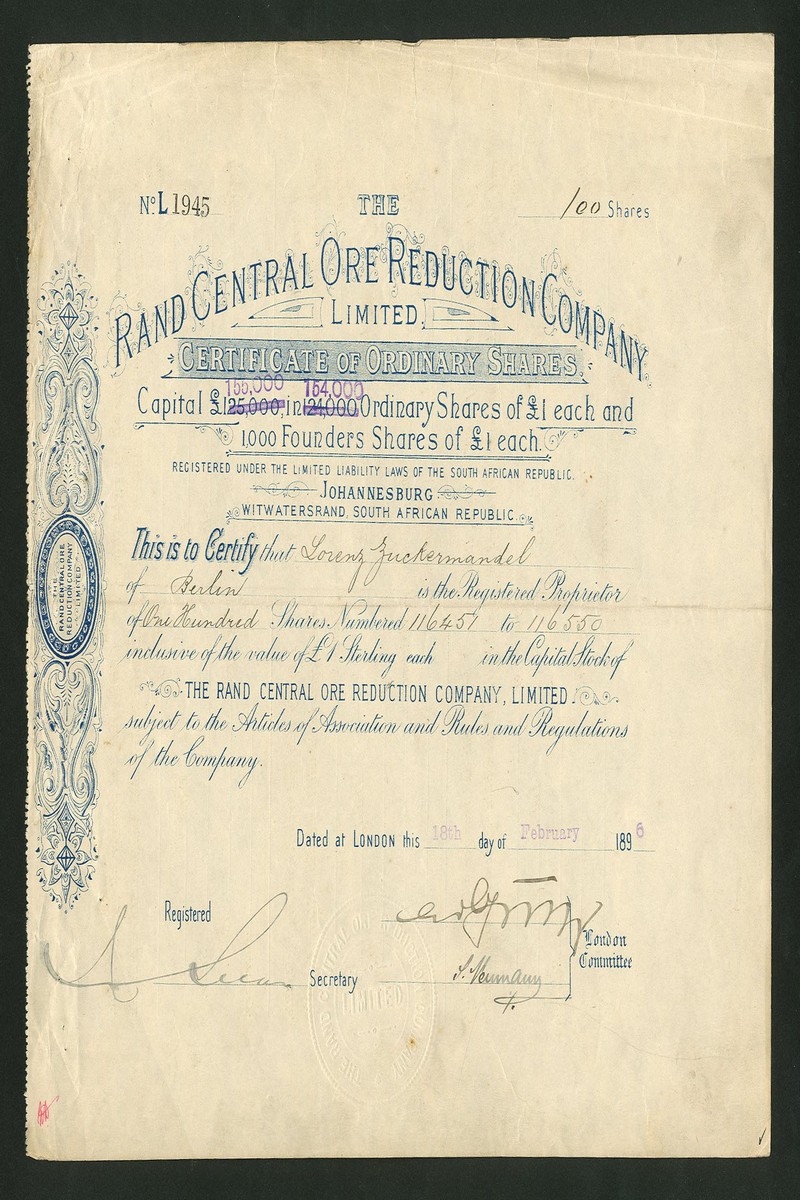 No. L 1945
THE
100 Shares
RAND CENTRAL ORE REDUCTION COMPANY
LIMITED.
CERTIFICATE OF ORDINARY SHARES.
155,000 154,000
Capital £125,000, in 24,000 Ordinary Shares of £1 each and
1,000 Founders Shares of £1 each.
REGISTERED UNDER THE LIMITED LIABILITY LAWS OF THE SOUTH AFRICAN REPUBLIC.
JOHANNESBURG
WITWATERSRAND, SOUTH AFRICAN REPUBLIC.
This is to Certify that Lorenz Zuckermandel
of Berlin is the Registered Proprietor
of One Hundred Shares Numbered 116451 to 116550
inclusive of the value of £1 Sterling each in the Capital Stock of
THE RAND CENTRAL ORE REDUCTION COMPANY, LIMITED.
subject to the Articles of Association and Rules and Regulations
of the Company.
THE
RAND CENTRAL ORE
REDUCTION COMPANY
LIMITED
Dated at LONDON this 18th day of February 1896
Registered
London
Committee
Secretary
S. Neumann
LIMITED